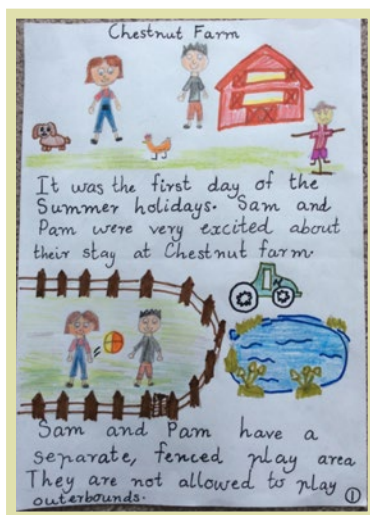 Chestnut Farm
It was the first day of the
Summer holidays. Sam and
Pam were very excited about
their stay at Chestnut farm.
Sam and Pam have a
separate, fenced play area
They are not allowed to play
outerbounds.
1